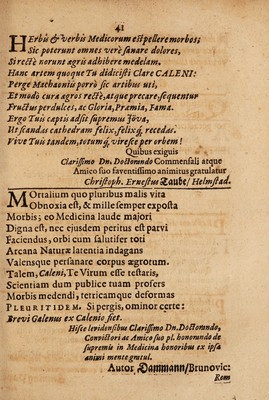 41
Herbis & verbis Medicorum est pellere morbos;
Sic poterunt omnes verè sanare dolores,
Si rectè norunt agris adhibere medelam.
Hanc artem quoque Tu didicisti Clare CALENI:
Perge Machaoniis porrò sic artibus uti,
Et modò cura agros rectè, atque precare, sequentur
Fructus perdulces, ac Gloria, Præmia, Fama.
Ergo Tuis captis adsit supremus Jōva,
Ut scandas cathedram felix, felixq́; recedas.
Vive Tuis tandem, totumq́; viresce per orbem!
Quibus exiguis
Clarissimo Dn. Doctorando Commensali atque
Amico suo faventissimo animitus gratulatur
Christoph. Ernestus Taube/ Helmstad.
MOrtalium quo pluribus malis vita
Obnoxia est, & mille semper exposta
Morbis; eo Medicina laude majori
Digna est, nec ejusdem peritus est parvi
Faciendus, orbi cum salutifer toti
Arcana Naturæ latentia indagans
Valensque persanare corpus ægrotum.
Talem, Caleni, Te Virum esse testaris,
Scientiam dum publice tuam prosers
Morbis medendi, tetricamque deformas
PLEURITIDEM. Si pergis, ominor certe:
Brevi Galenus ex Calenio fiet.
Hisce levidensibus Clarissimo Dn. Doctorando,
Convictori ac Amico suo pl. honorando de
supremis in Medicina honoribus ex ipsa
animi mente gratul.
Autor Dammann/ Brunovic:
Rom